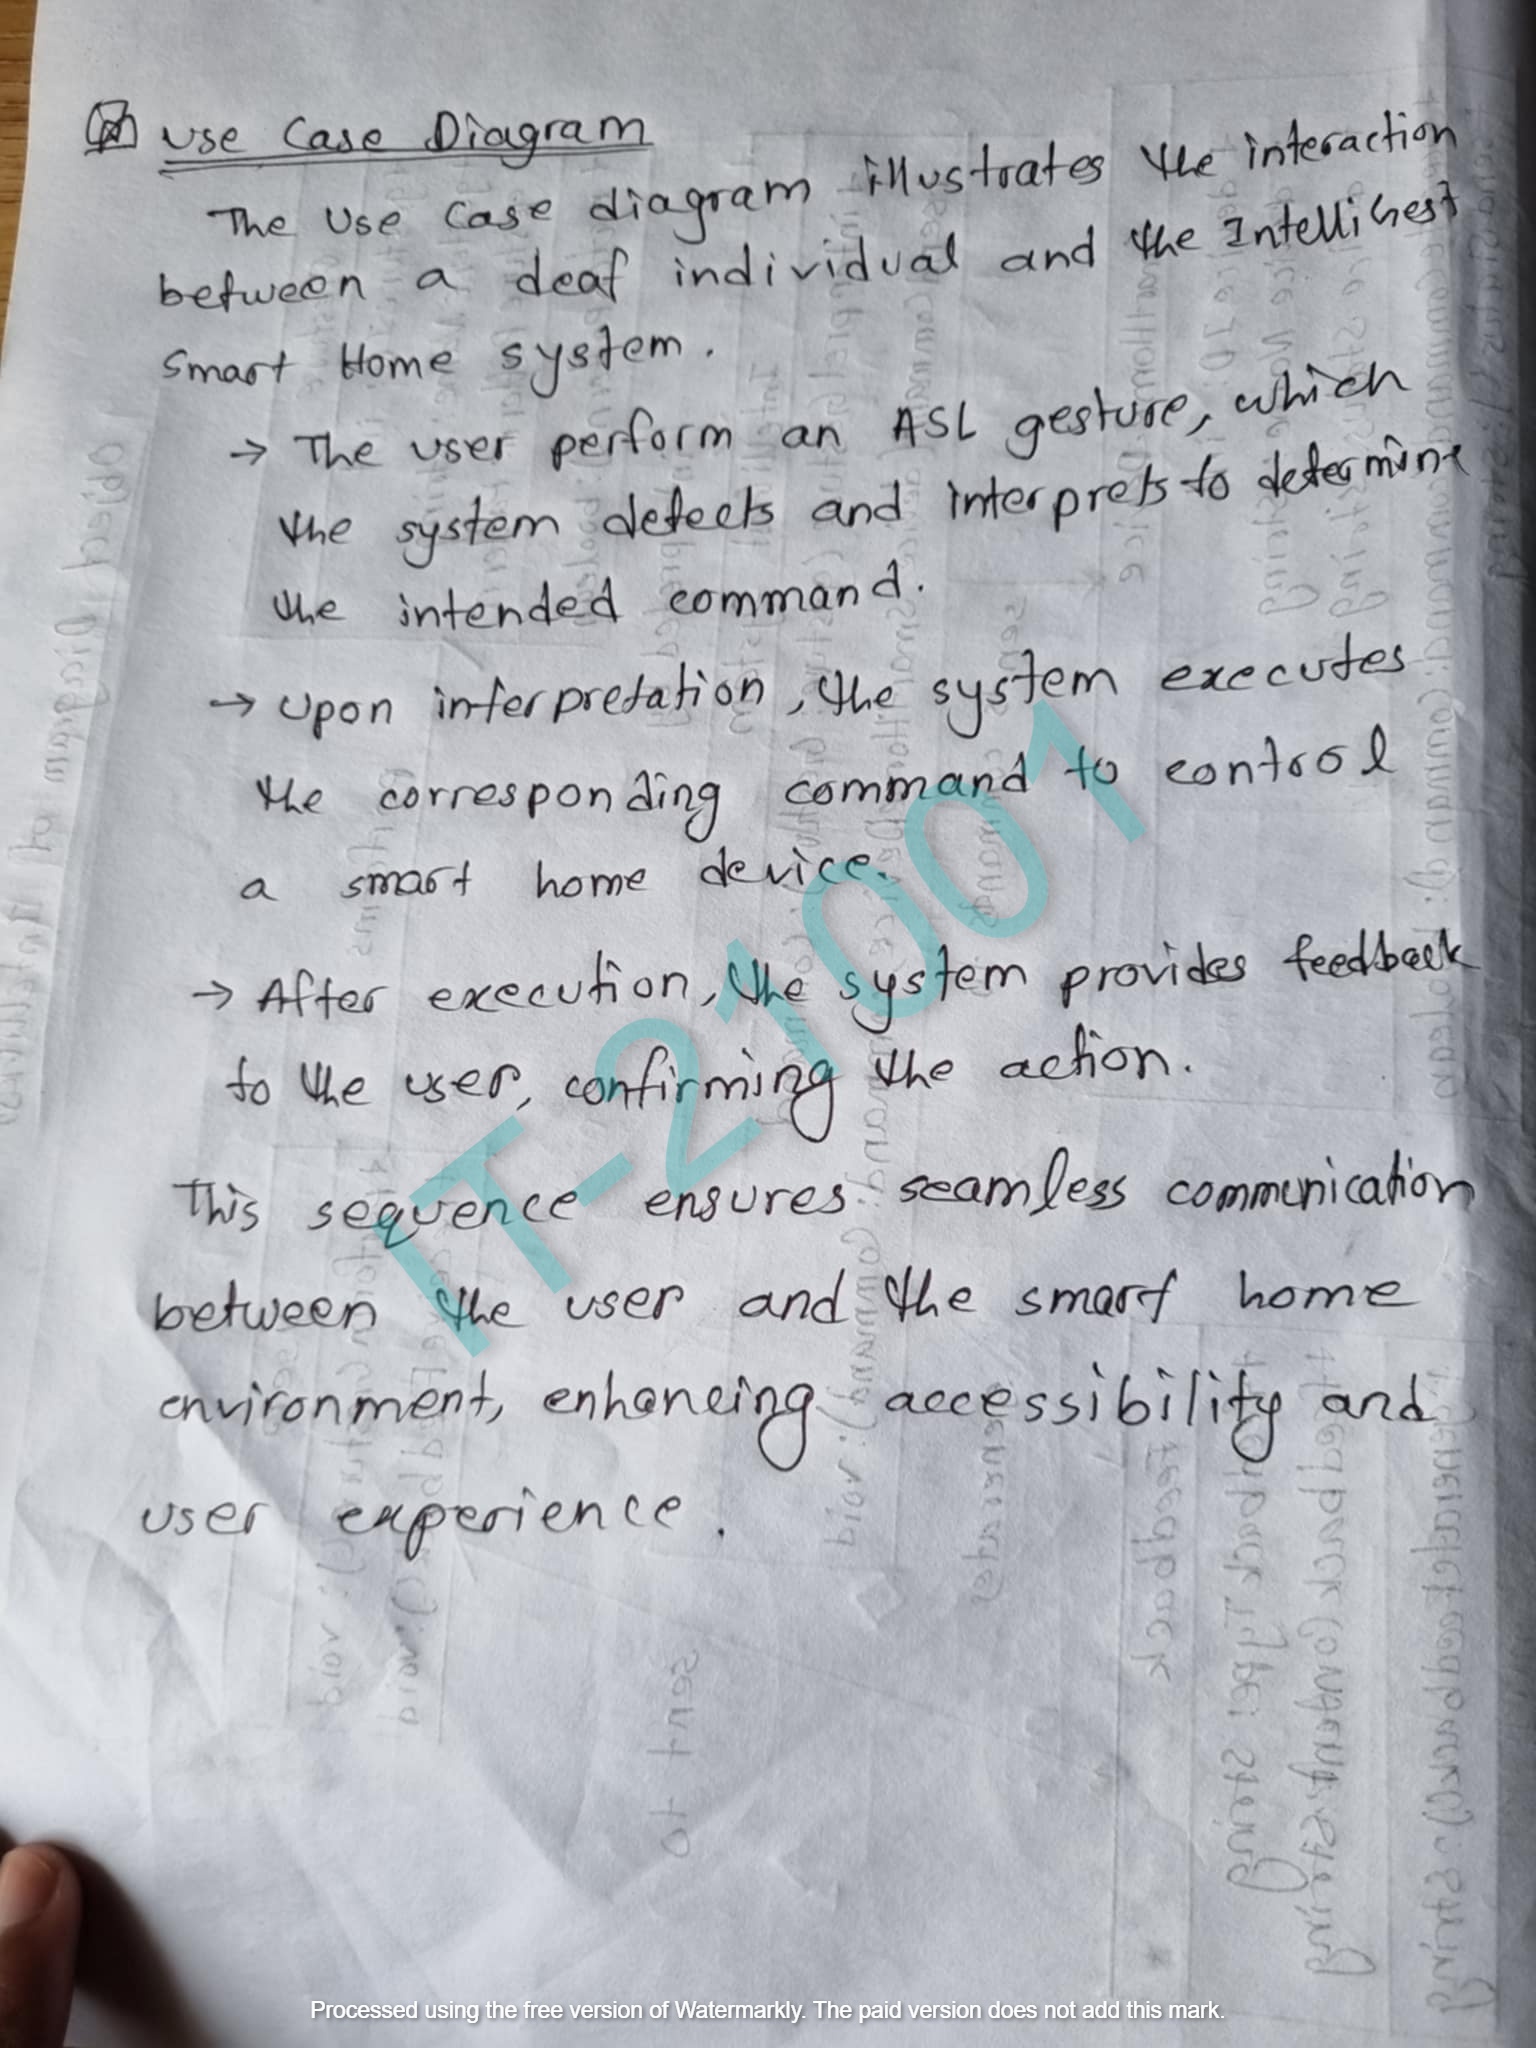 Use Case Diagram
The Use Case diagram illustrates the interaction
between a deaf individual and the Intelligest
Smart Home system.
→ The user perform an ASL gesture, which
the system detects and interprets to determine
the intended command.
→ Upon interpretation, the system executes
the corresponding command to control
a smart home device.
→ After execution, the system provides feedback
to the user, confirming the action.
This sequence ensures seamless communication
between the user and the smart home
environment, enhancing accessibility and
user experience.
IT-21001
Processed using the free version of Watermarkly. The paid version does not add this mark.